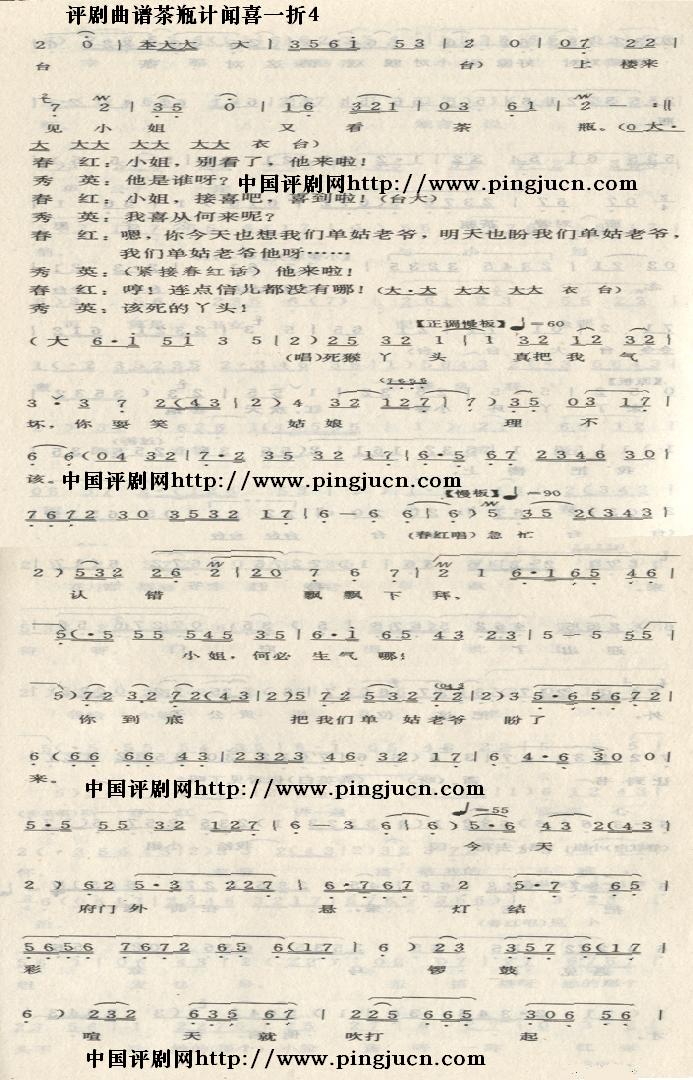 评剧曲谱茶瓶计闻喜一折4
2 0 | 本大大 大 | 3561 53 | 2 0 | 07 22 |
台 台) 上楼来
7 2 | 35 0 | 16 321 | 03 61 | 2 - :||
见小姐 又看茶瓶。(0 大·
大 大大 大大 大大 衣 台)
春 红:小姐,别看了,他来啦!
秀 英:他是谁呀?
中国评剧网http://www.pingjucn.com
春 红:小姐,接喜吧,喜到啦!(台大)
秀 英:我喜从何来呢?
春 红:嗯,你今天也想我们单姑老爷,明天也盼我们单姑老爷,
我们单姑老爷他呀……
秀 英:(紧接春红话)他来啦!
春 红:哼!连点信儿都没有哪!(大·大 大大 大大 衣 台)
秀 英:该死的丫头!
【正调慢板】 ♩=60
(大 6·1 51 3 5 | 2) 25 32 1 | 1 32 12 32 |
(唱)死猴丫头 真把我气
(7656)
3 3 7 2(43 | 2) 4 32 127 | 7) 35 03 17 |
坏,你耍笑 姑娘 理不
6 6(04 32 | 7·2 35 32 17 | 6·5 67 2346 30 |
该。
中国评剧网http://www.pingjucn.com
【慢板】 ♩=90
7672 30 3532 17 | 6 - 6 6 | 6) 5 35 2(43 |
(春红唱)急忙
2) 532 26 2 | 20 7 6 7 | 2 1 6·165 46 |
认错 飘飘下拜,
5(·5 55 545 35 | 6·1 65 43 23 | 5 - 5 55 |
小姐,何必生气哪!
(043
5) 72 32 72(43 | 2) 5 72 532 72 | 2) 3 5·65672 |
你到底 把我们单姑老爷盼了
6(66 66 43 | 2323 46 32 17 | 6 4·6 30 0 |
来。
中国评剧网http://www.pingjucn.com
♩=55
5·5 55 32 127 | 6 - 3 6 | 6) 5·6 43 2(43 |
今天
2) 62 5·3 227 | 6·767 2 5·7 65 |
府门外 悬灯结
5656 7672 65 6(17 | 6) 23 3576 6(17 |
彩 锣鼓
6) 232 635 67 | 225 665 306 56 |
喧天就吹打起
中国评剧网http://www.pingjucn.com